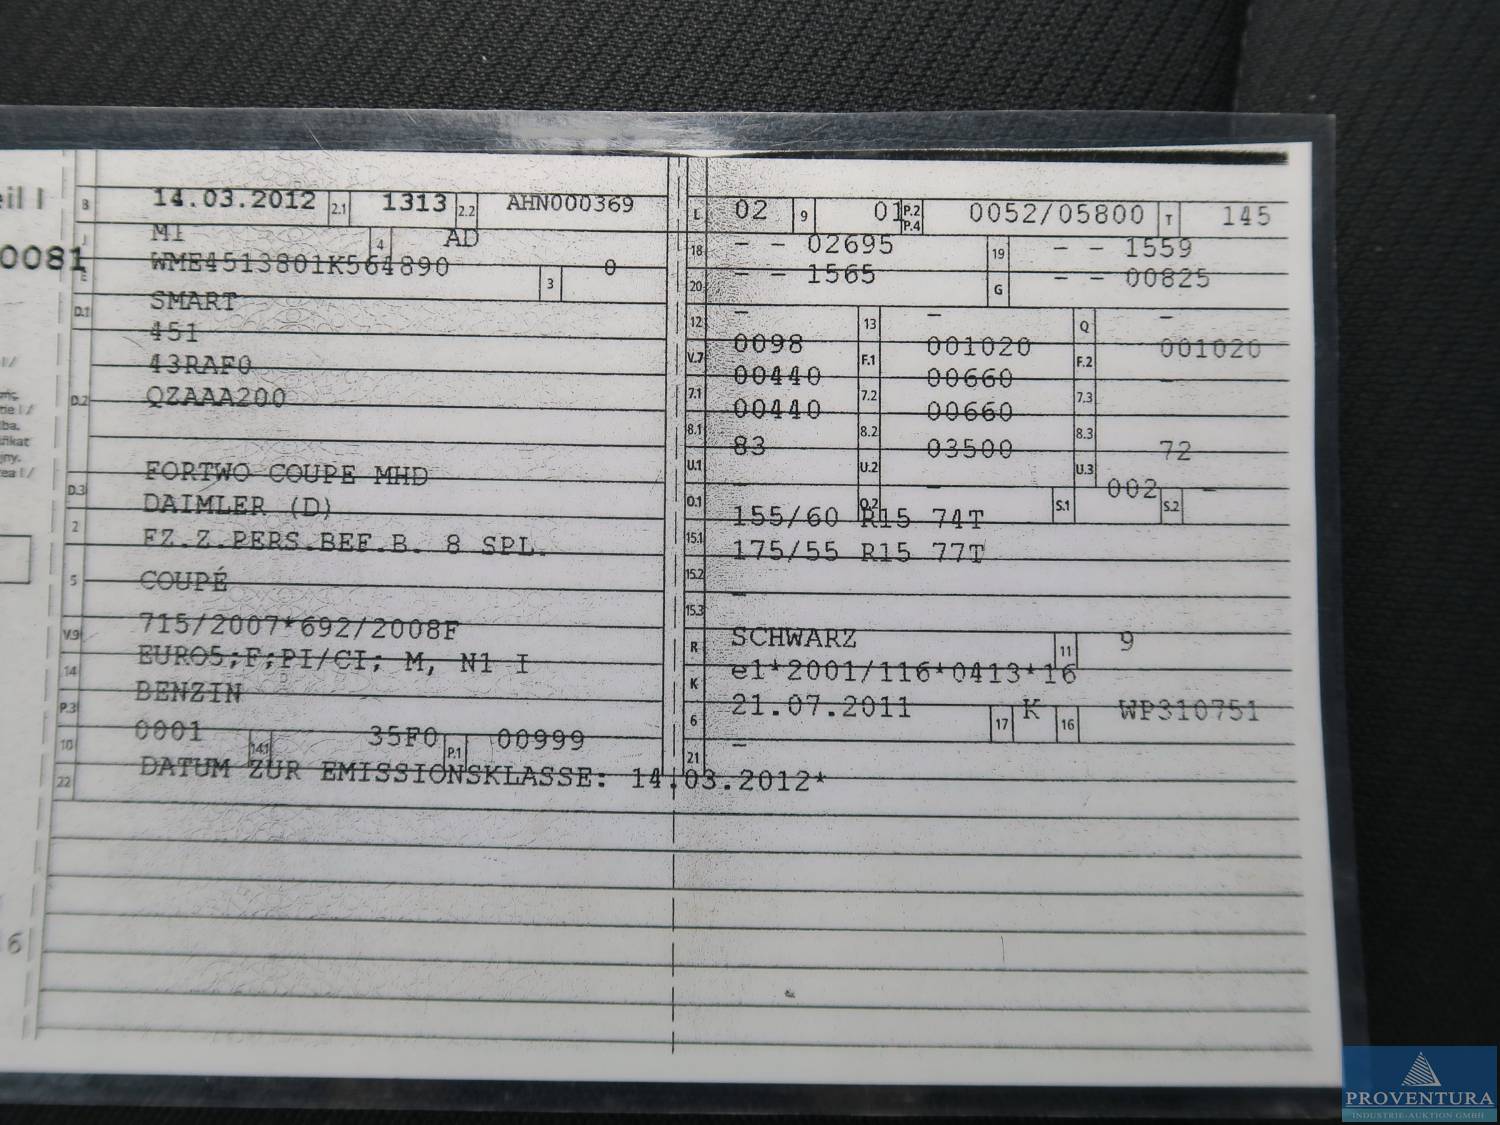 eil I
0081
B 14.03.2012 2.1 1313 2.2 AHN000369
J M1 4 AD
E WME4513801K564890 3 0
D.1 SMART
451
D.2 43RAF0
QZAAA200
D.3 FORTWO COUPE MHD
2 DAIMLER (D)
5 FZ.Z.PERS.BEF.B. 8 SPL.
COUPÉ
V.9 715/2007*692/2008F
14 EURO5;F;PI/CI; M, N1 I
P.3 BENZIN
10 0001 14.1 35F0 P.1 00999
22 DATUM ZUR EMISSIONSKLASSE: 14.03.2012*
L 02 9 01 P.2 P.4 0052/05800 T 145
18 - - 02695 19 - - 1559
20 - - 1565 G - - 00825
12 - 13 - Q -
V.7 0098 F.1 001020 F.2 001020
7.1 00440 7.2 00660 7.3 -
8.1 00440 8.2 00660 8.3
U.1 83 U.2 03500 U.3 72
O.1 - O.2 - S.1 002 S.2 -
15.1 155/60 R15 74T
15.2 175/55 R15 77T
15.3 -
R SCHWARZ 11 9
K e1*2001/116*0413*16
6 21.07.2011 17 K 16 WP310751
21 -
tie I /
lba.
ifikat
jny.
rea I /
6
PROVENTURA
INDUSTRIE-AUKTION GMBH